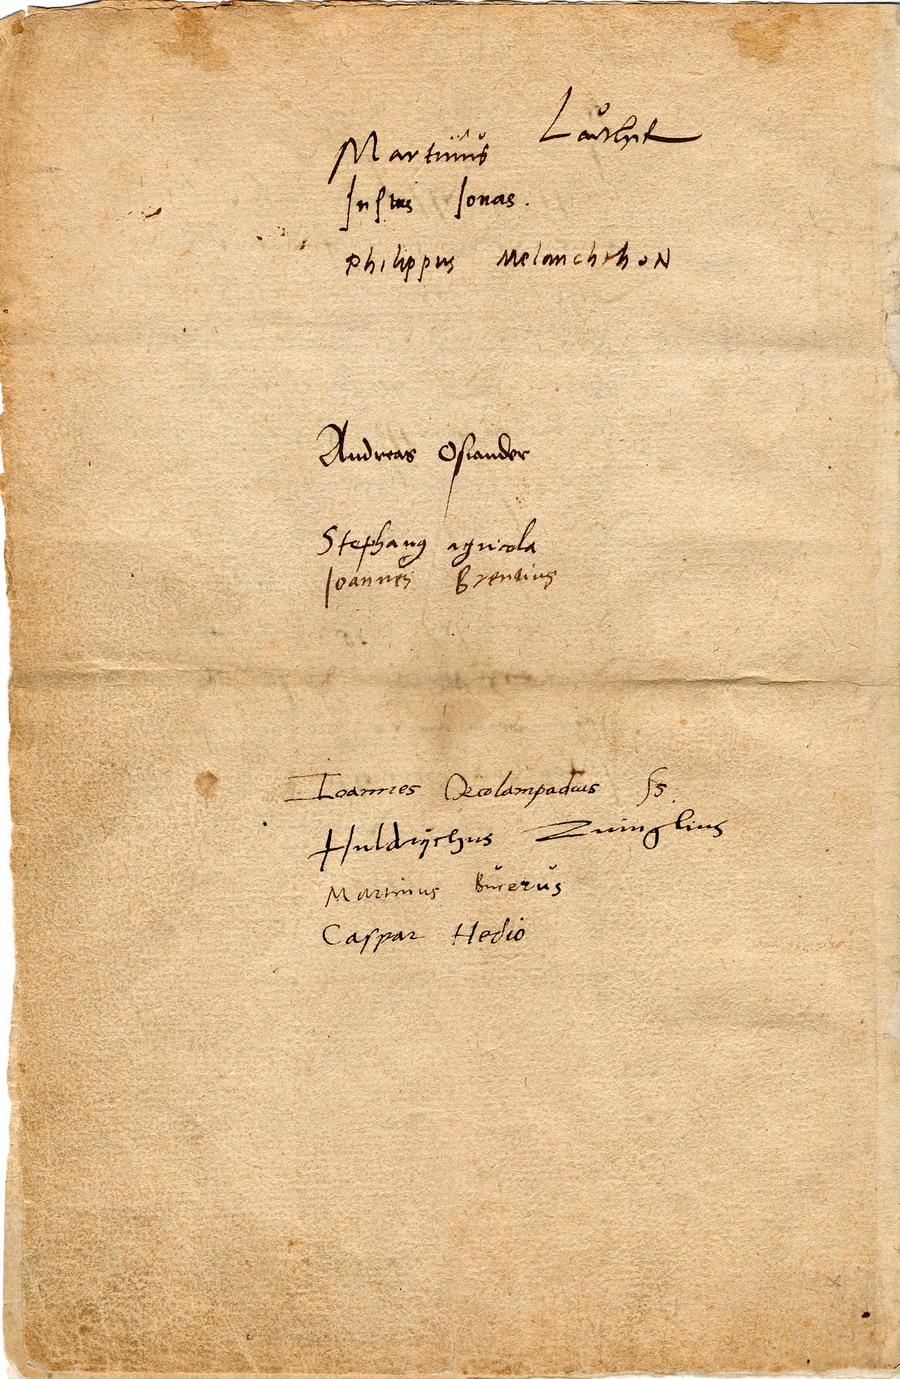 Martinus Luther
Iustus Ionas.
Philippus MelanchthoN
Andreas Osiander
Stephanus agricola
Ioannes Brentius
Ioannes Oecolampadius ss.
Huldrychus Zuinglius
Martinus Bucerus
Caspar Hedio